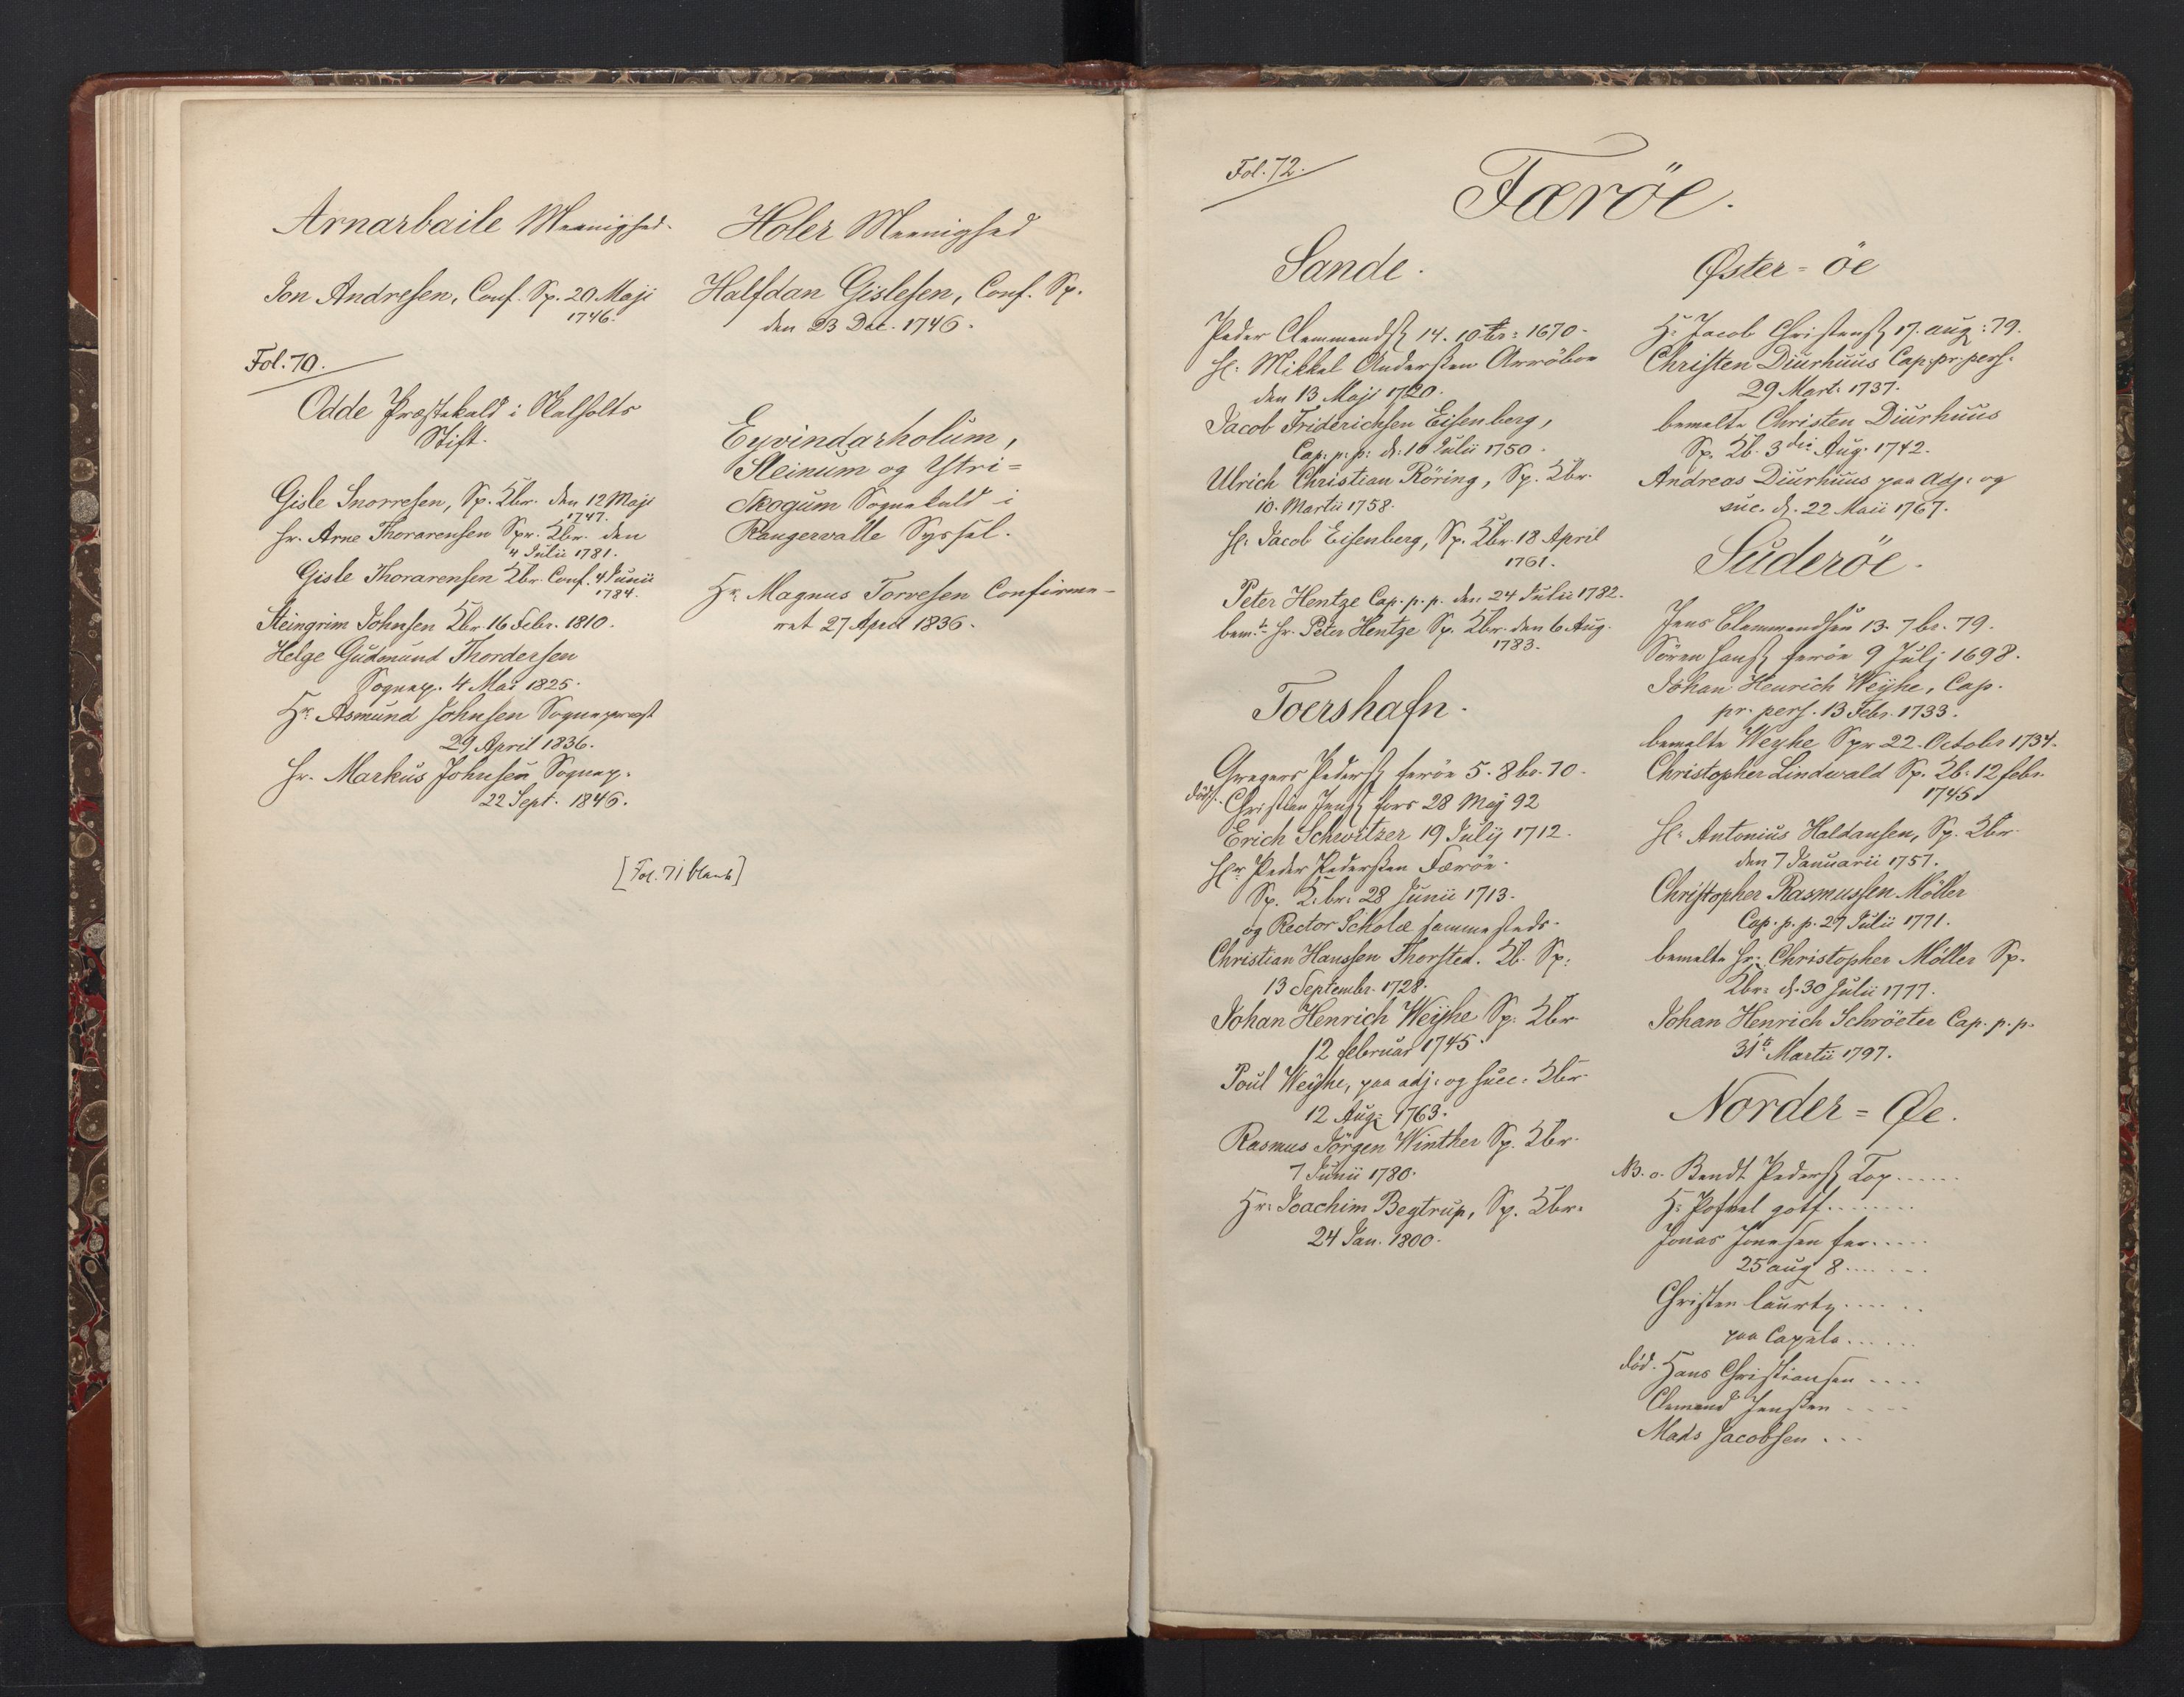 Arnarbaile Meenighed.
Jon Andresen, Conf. Sp. 20 Maji
1746.
Fol. 70.
Odde Præstekald i Skalholts
Stift.
Gisle Snorresen, Sp. Kbr. den 12 Maji
1747.
hr. Arne Thorarensen Spr. Kbr. den
4 Julii 1781.
Gisle Thorarensen Kbr. Conf. 4 Junii
1784.
Steingrim Johnsen Kbr. 16 Febr. 1810.
Helge Gudmund Thordersen
Sognep. 4 Mai 1825.
Hr. Asmund Johnsen Sognepræst
29 April 1836.
hr. Markus Johnsen Sognep.
22 Sept. 1846.
Holer Meenighed
Halfdan Gislesen, Conf. Sp.
den 23 Dec. 1746.
Eyvindarholum,
Steinum og Ytri=
skogum Sognekald i
Rangervalle Syssel.
Hr. Magnus Torvesen Confirme-
ret 27 April 1836.
[Fol. 71 blank]
Fol. 72.
Færöe.
Sande.
Peder Clemmends. 14. 10br: 1670.
Hr: Mikkel Anderssen Arröboe
den 13 Maji 1720.
Jacob Friderichsen Eisenberg,
Cap: p: p: d: 10 Julii 1750.
Ulrich Christian Röring, Sp. Kbr.
10. Martii 1758.
Hr: Jacob Eisenberg, Sp. Kbr. 18 April
1761.
Peter Hentze Cap. p. p. den 24 Julii 1782.
bem.te hr. Peter Hentze Sp. Kbr. den 6 Aug.
1783.
Toershafn.
Gregers Peders. feröe 5. 8br. 70.
død. Christen Jens. fors 28 Maj 92
Erich Schwitzer 19 Julij 1712.
Hr. Peder Pederssen Færöe.
Sp. K: br: 28 Junii 1713.
og Rector Scholæ sammesteds.
Christian Hanssen Thorsted. Kb. Sp:
13 Septembr. 1728.
Johan Henrich Weyhe Sp. Kbr
12 februar 1745.
Poul Weyhe, paa adj: og succ: Kbr
12 Aug: 1763.
Rasmus Jörgen Winther Sp. Kbr.
7 Junii 1780.
Hr: Joachim Begtrup, Sp. Kbr.
24 Jan. 1800.
Øster=öe
H: Jacob Christens. 17. aug: 79.
Christen Diurhuus Cap: pr. pers.
29 Mart: 1737.
bemelte Christen Diurhuus
Sp. Kb. 3die Aug. 1742.
Andreas Diurhuus paa Adj: og
suc. d. 22 Maii 1767.
Suderöe.
Jens Clemmendsen 13. 7br. 79.
Sören Hans. feröe 9 Julj 1698.
Johan Henrich Weyhe, Cap.
pr. pers. 13 Febr. 1733.
bemelte Weyhe Spr 22. Octobr 1734.
Christopher Lindwald Sp. Kb: 12 febr.
1745
Hr: Antonius Haldansen, Sp. Kbr.
den 7 Januarii 1757.
Christopher Rasmussen Möller
Cap. p. p. 27 Julii 1771.
bemelte hr: Christopher Möller Sp.
Kbr: d. 30 Julii 1777.
Johan Henrich Schröeter Cap. p. p.
31te Martii 1797.
Norder=Øe.
NB. o. Bendt Peders. Cop......
H: Poffuel gotf........
Jonas Jonesen fer.....
25 aug 8.......
Christen laurtz......
paa Capela......
död. Hans Christiansen ....
Clemend Jenssen ....
Mads Jacobsen ...